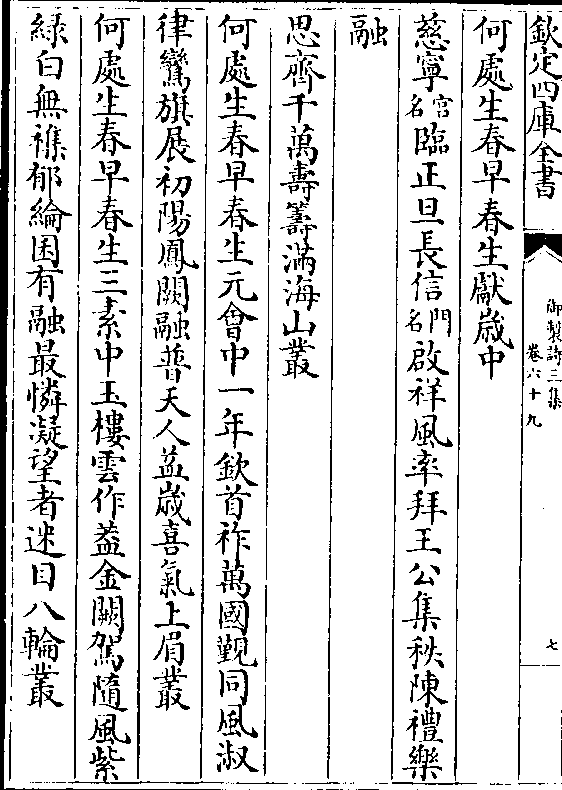 欽定四庫全書
御製詩三集
卷六十九
七
何處生春早春生獻歲中
慈寧宮名臨正旦長信門名啟祥風率拜王公集秩陳禮樂
融
思齊千萬壽籌滿海山叢
何處生春早春生元會中一年欽首祚萬國覲同風淑
律鸞旗展初陽鳳闕融普天人益歲喜氣上眉叢
何處生春早春生三素中玉樓雲作葢金闕駕隨風紫
緑白無襍郁綸囷有融最憐凝望者迷目八輪叢